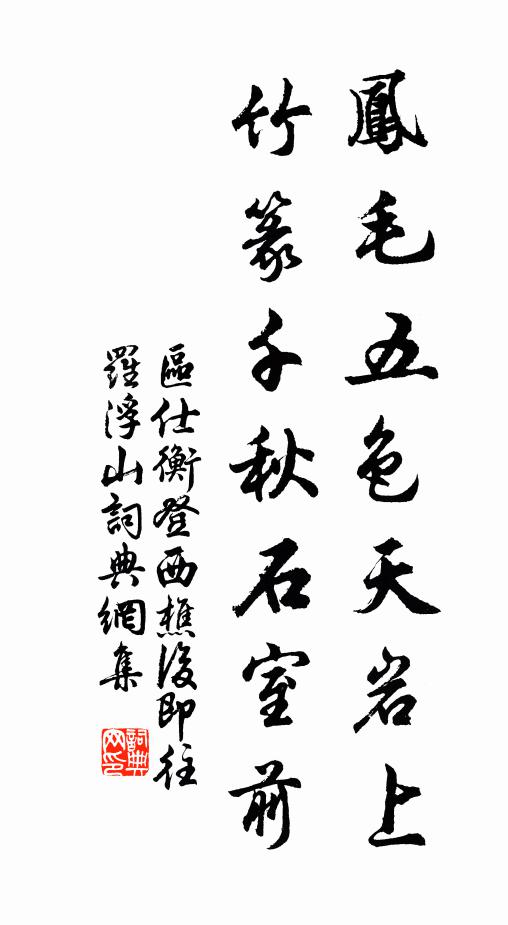 鳳毛五色天岩上
竹篆千秋石室前
區仕衡登西樵後即往
羅浮山詞典網集
詞典网印